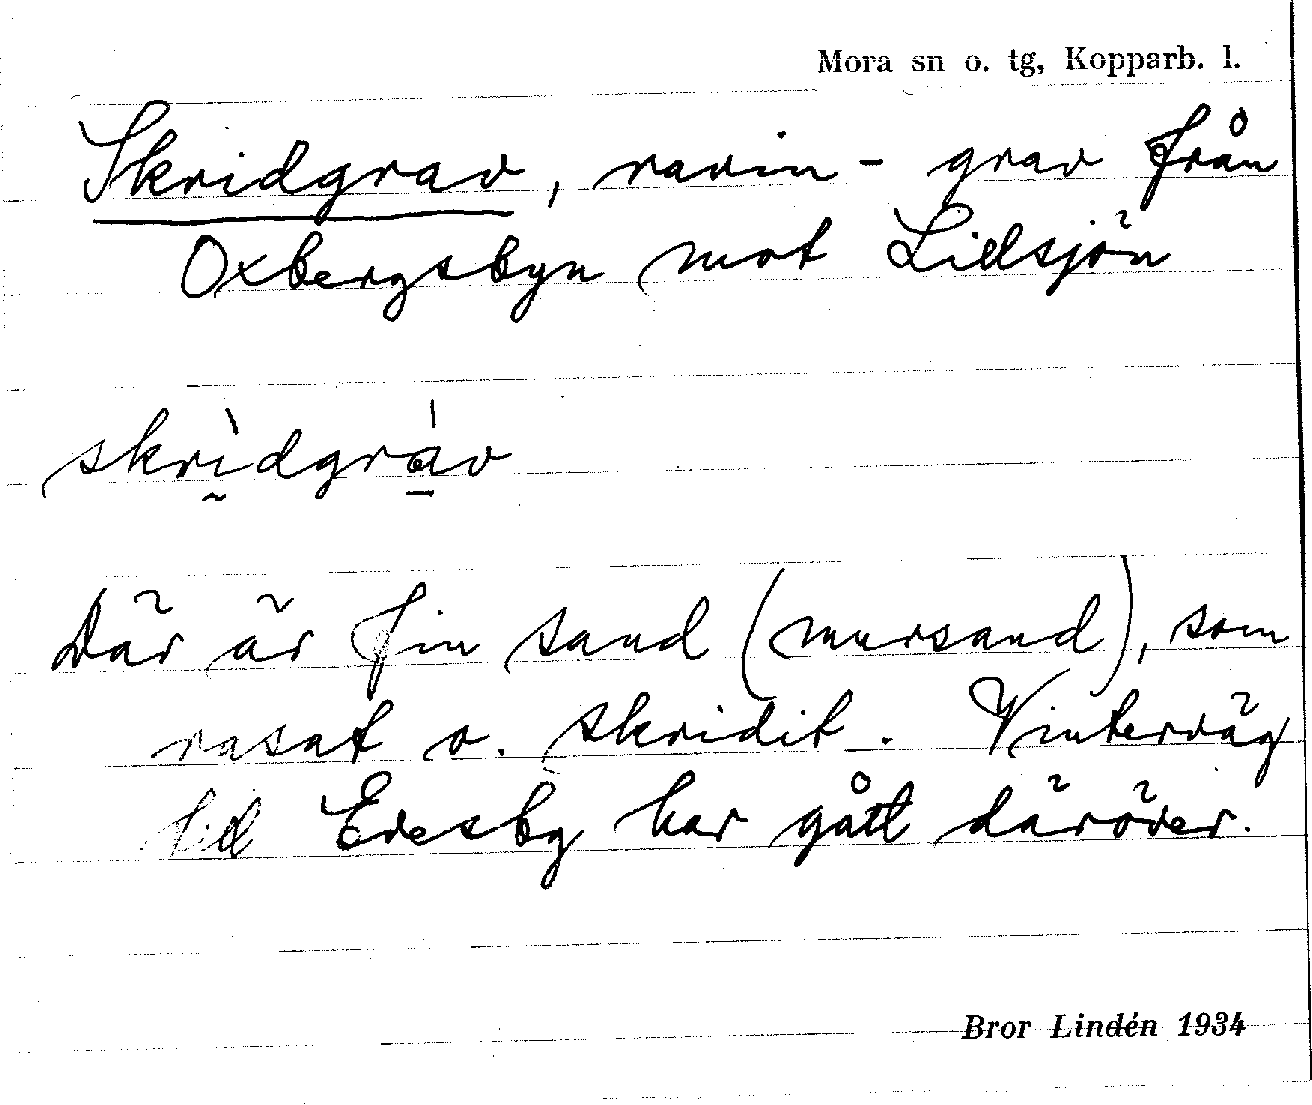 Mora sn o. tg, Kopparb. l.
Skridgrav, ravin- grav från
Oxbergsbyn mot Lillsjön
skrìdgráv
Där är fin sand (mursand), som
rasat o. skridit. Vinterväg
till Evesby har gått däröver.
Bror Lindén 1934